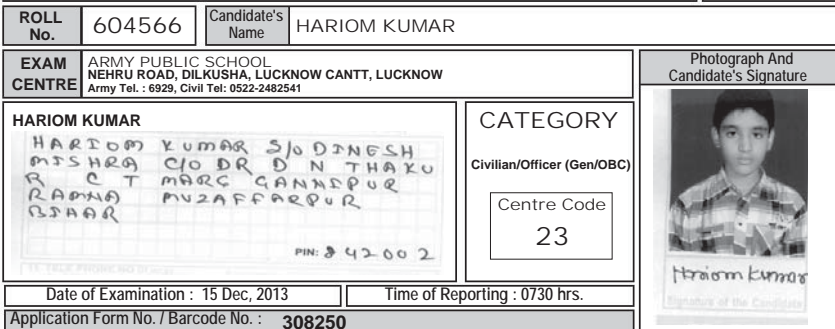 ROLL No. 604566 Candidate's Name HARIOM KUMAR
EXAM CENTRE
ARMY PUBLIC SCHOOL
NEHRU ROAD, DILKUSHA, LUCKNOW CANTT, LUCKNOW
Army Tel. : 6929, Civil Tel: 0522-2482541
Photograph And
Candidate's Signature
HARIOM KUMAR
HARIOM KUMAR S/o DINESH
MISHRA C/O DR D N THAKU
R C T MARG GANNIPUR
RAMNA MUZAFFARPUR
BIHAR
PIN: 842002
CATEGORY
Civilian/Officer (Gen/OBC)
Centre Code
23
Hariom Kumar
Signature of the Candidate
Date of Examination : 15 Dec, 2013 Time of Reporting : 0730 hrs.
Application Form No. / Barcode No. : 308250